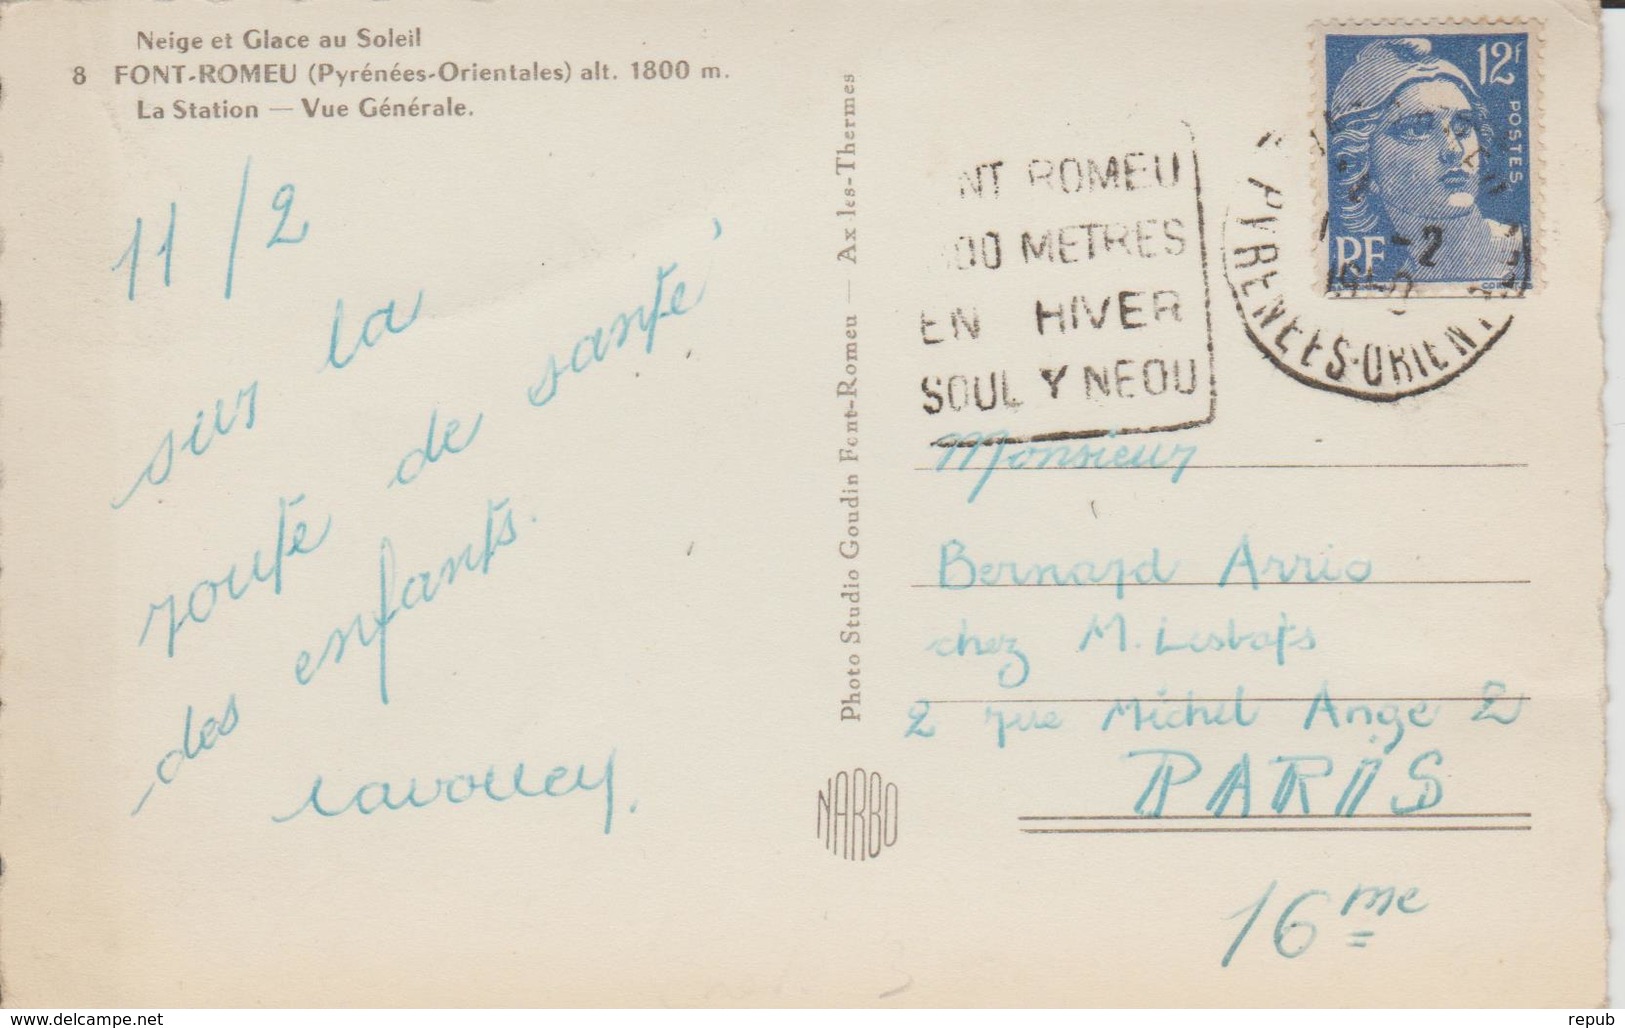 Neige et Glace au Soleil
8 FONT-ROMEU (Pyrénées-Orientales) alt. 1800 m.
La Station — Vue Générale.
11/2
sur la
route de santé
des enfants.
Photo Studio Goudin Font-Romeu — Ax-les-Thermes
NARBO
NT ROMEU
00 METRES
EN HIVER
SOUL Y NEOU
12f
POSTES
RF
-2
PYRENEES-ORIENT
Monsieur
Bernard Arrio
chez M. Lesbats
2 rue Michel Ange 2
PARIS
16me
www.delcampe.net
repub